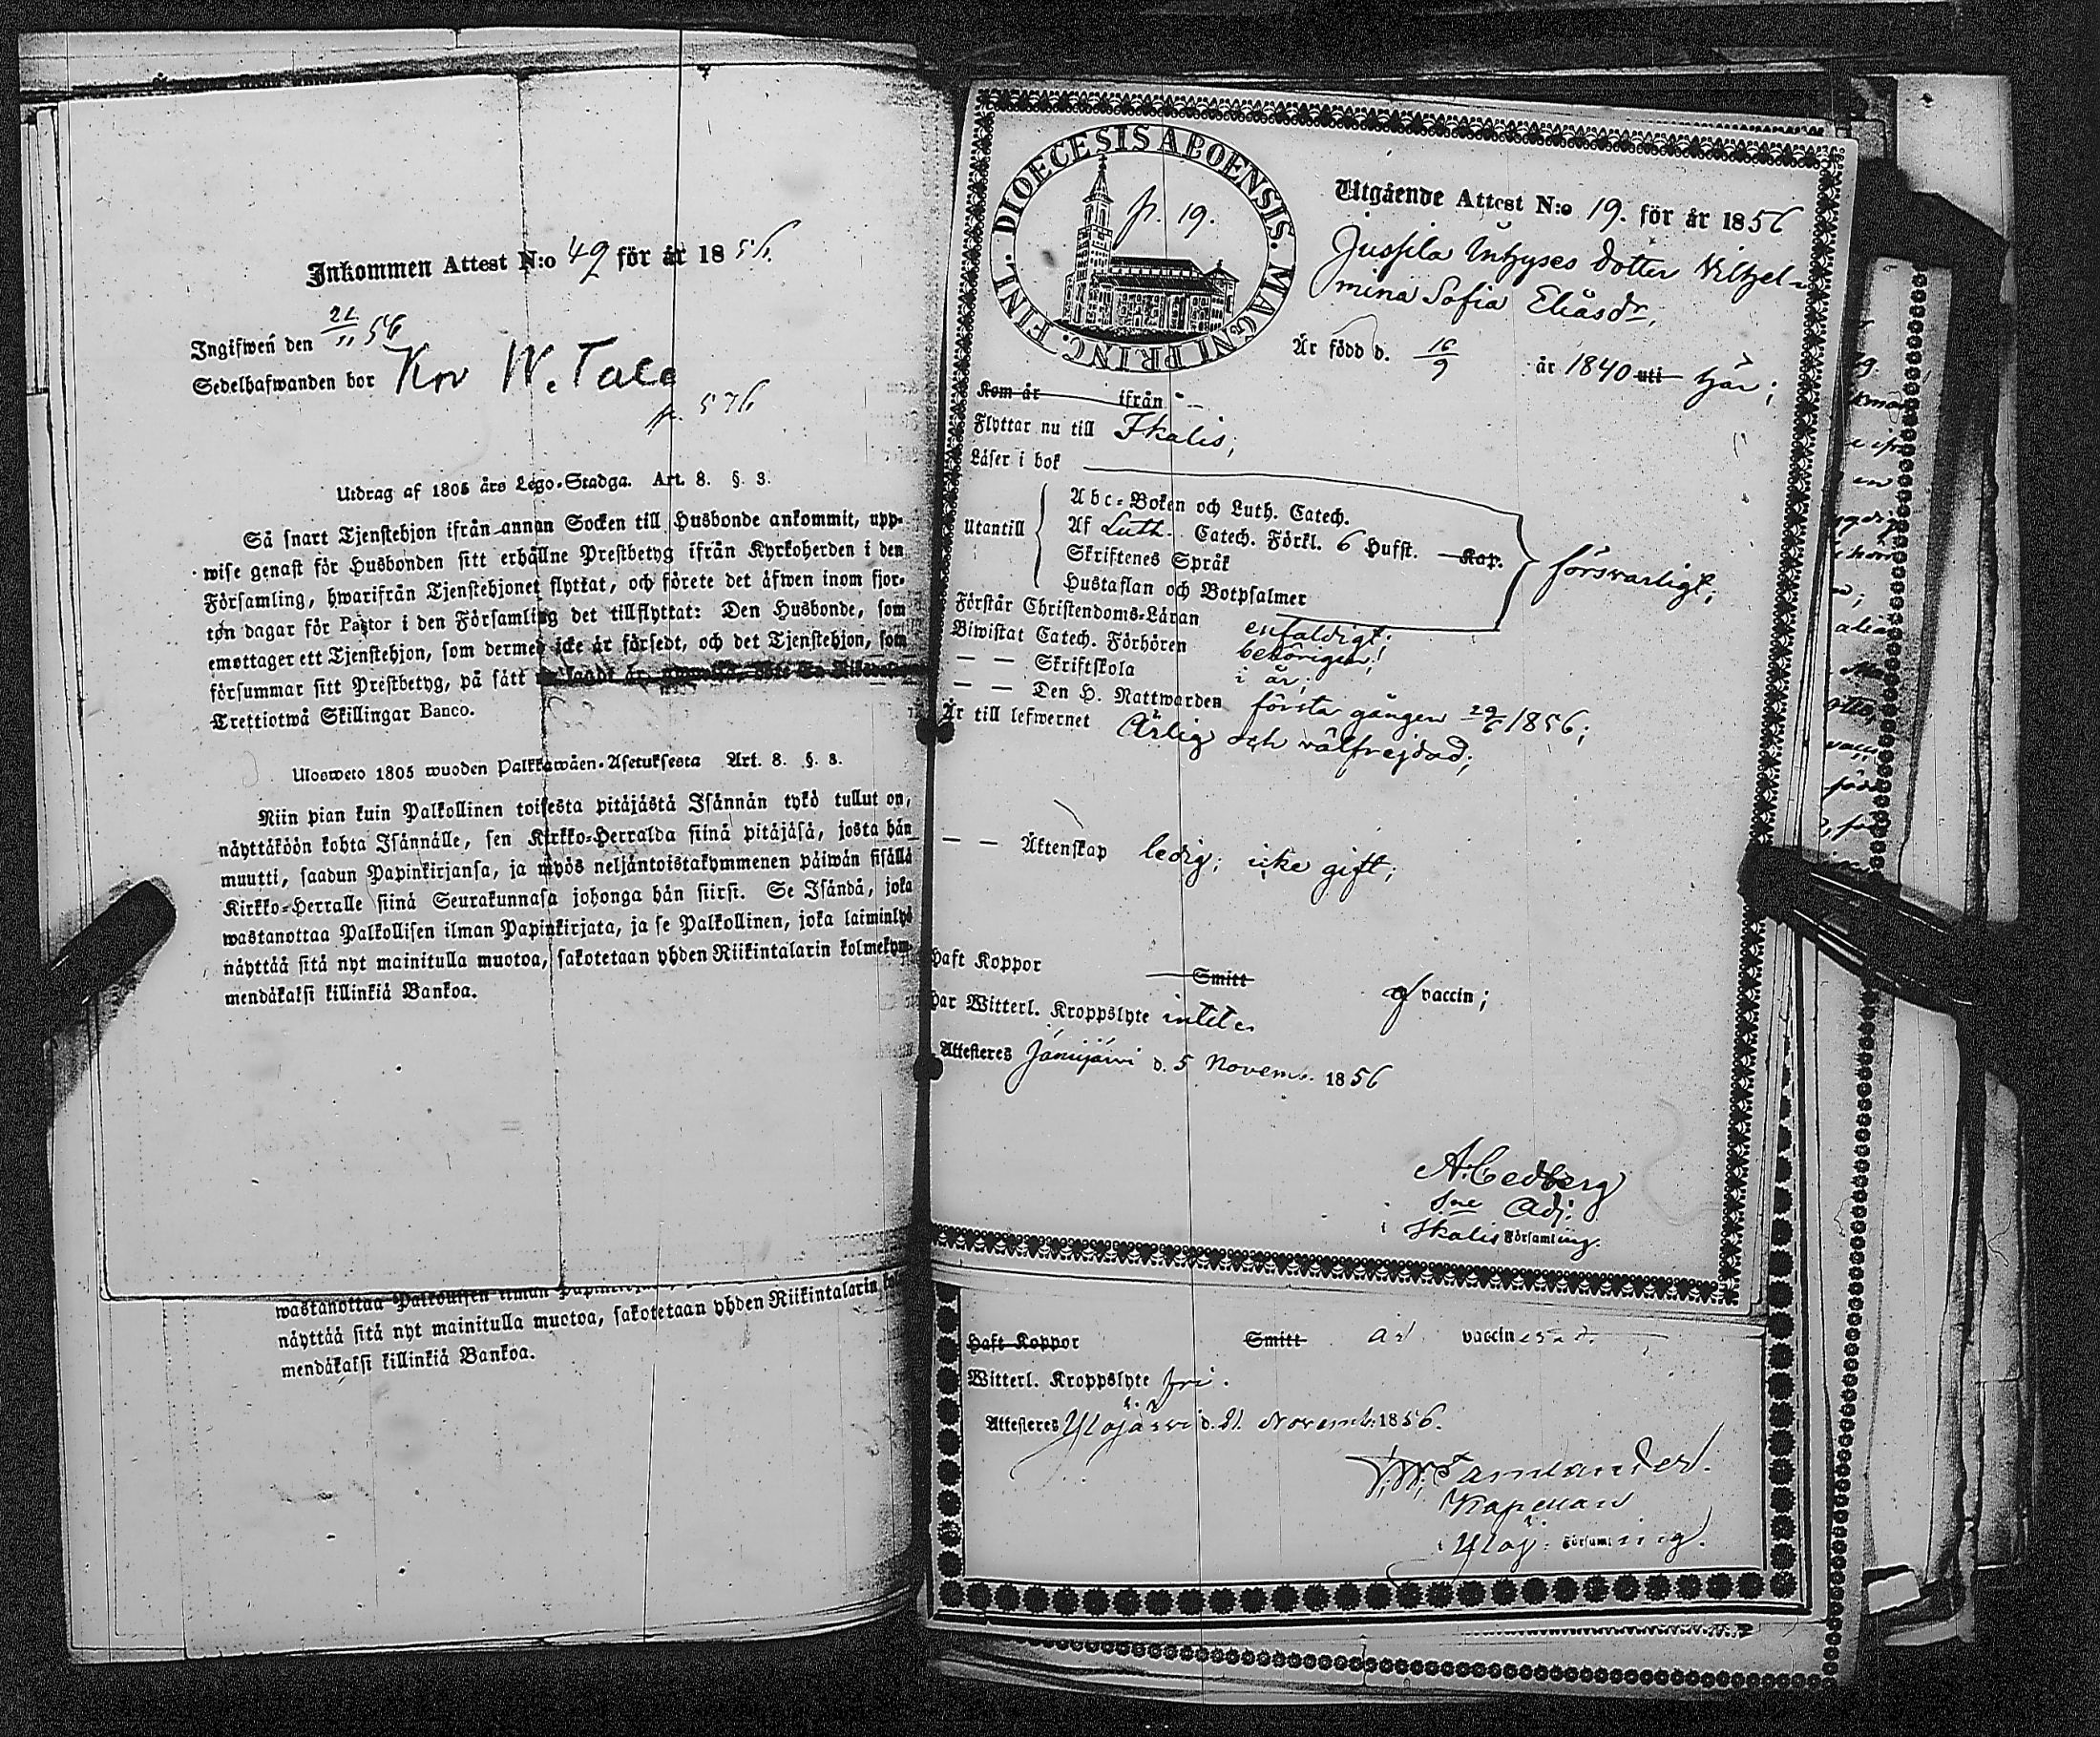 Inkommen Attest N:o 49 för år 1856.
Ingifwen den 21/11 56
Sedelhafwanden bor Krv W. Tala
p. 576
Utdrag af 1805 års Lego-Stadga. Art. 8. §. 3.
Så snart Tjenstehjon ifrån annan Socken till Husbonde ankommit, upp-
wise genast för Husbonden sitt erhållne Prestbetyg ifrån Kyrkoherden i den
Församling, hwarifrån Tjenstehjonet flyttat, och förete det äfwen inom fjor-
ton dagar för Pastor i den Församling det tillflyttat: Den Husbonde, som
emottager ett Tjenstehjon, som dermed icke är försedt, och det Tjenstehjon, som
försummar sitt Prestbetyg, på sätt
Trettiotwå Skillingar Banco.
Ulosweto 1805 wuoden Palkkawäen-Asetuksesta Art. 8. §. 3.
Niin pian kuin Palkollinen toisesta pitäjästä Isännän tykö tullut on,
näyttäköön kohta Isännälle, sen Kirkko-Herralda siinä pitäjäsä, josta hän
muutti, saadun Papinkirjansa, ja myös neljäntoistakymmenen päiwän sisällä
Kirkko-Herralle siinä Seurakunnasa johonga hän siirsi. Se Isändä, joka
wastanottaa Palkollisen ilman Papinkirjata, ja se Palkollinen, joka laiminlyö
näyttää sitä nyt mainitulla muotoa, sakotetaan yhden Riikintalarin kolmekym-
mendäkaksi killinkiä Bankoa.
wastanottaa Palkollisen ilman
näyttää sitä nyt mainitulla muotoa, sakotetaan yhden Riikintalarin kol
mendäkaksi killinkiä Bankoa.
DIOECESIS ABOENSIS. MAGNI PRINC. FINL.
p. 19.
Utgående Attest N:o 19. för år 1856
Jussila Inhyses dotter Wilhel-
mina Sofia Eliasdr,
Är född d. 16/9 år 1840 uti här;
Kom år ifrån
Flyttar nu till Ikalis;
Läser i bok
Utantill
Abc-Boken och Luth. Catech.
Af Luth. Catech. Förkl. 6 Hufst. Kap.
Skriftenes Språk
Hustaflan och Botpsalmer
försvarligt;
Förstår Christendoms-Läran enfaldigt;
Biwistat Catech. Förhören behörigen;
— — Skriftskola i år;
— — Den H. Nattwarden första gången 29/6 1856;
Är till lefwernet Ärlig och välfrejdad;
— — Äktenskap ledig; icke gift;
Haft Koppor Smitt af vaccin;
Har Witterl. Kroppslyte intet.
Attesteres Jämijärvi d. 5 Novemb. 1856
A. Cedberg
Sne Adj.
i Ikalis Församling.
Haft Koppor Smitt är vaccinerad.
Witterl. Kroppslyte fri.
Attesteres Ylöjärvi d. 21 Novemb. 1856.
Kapellan
i Ylöj. Församling.